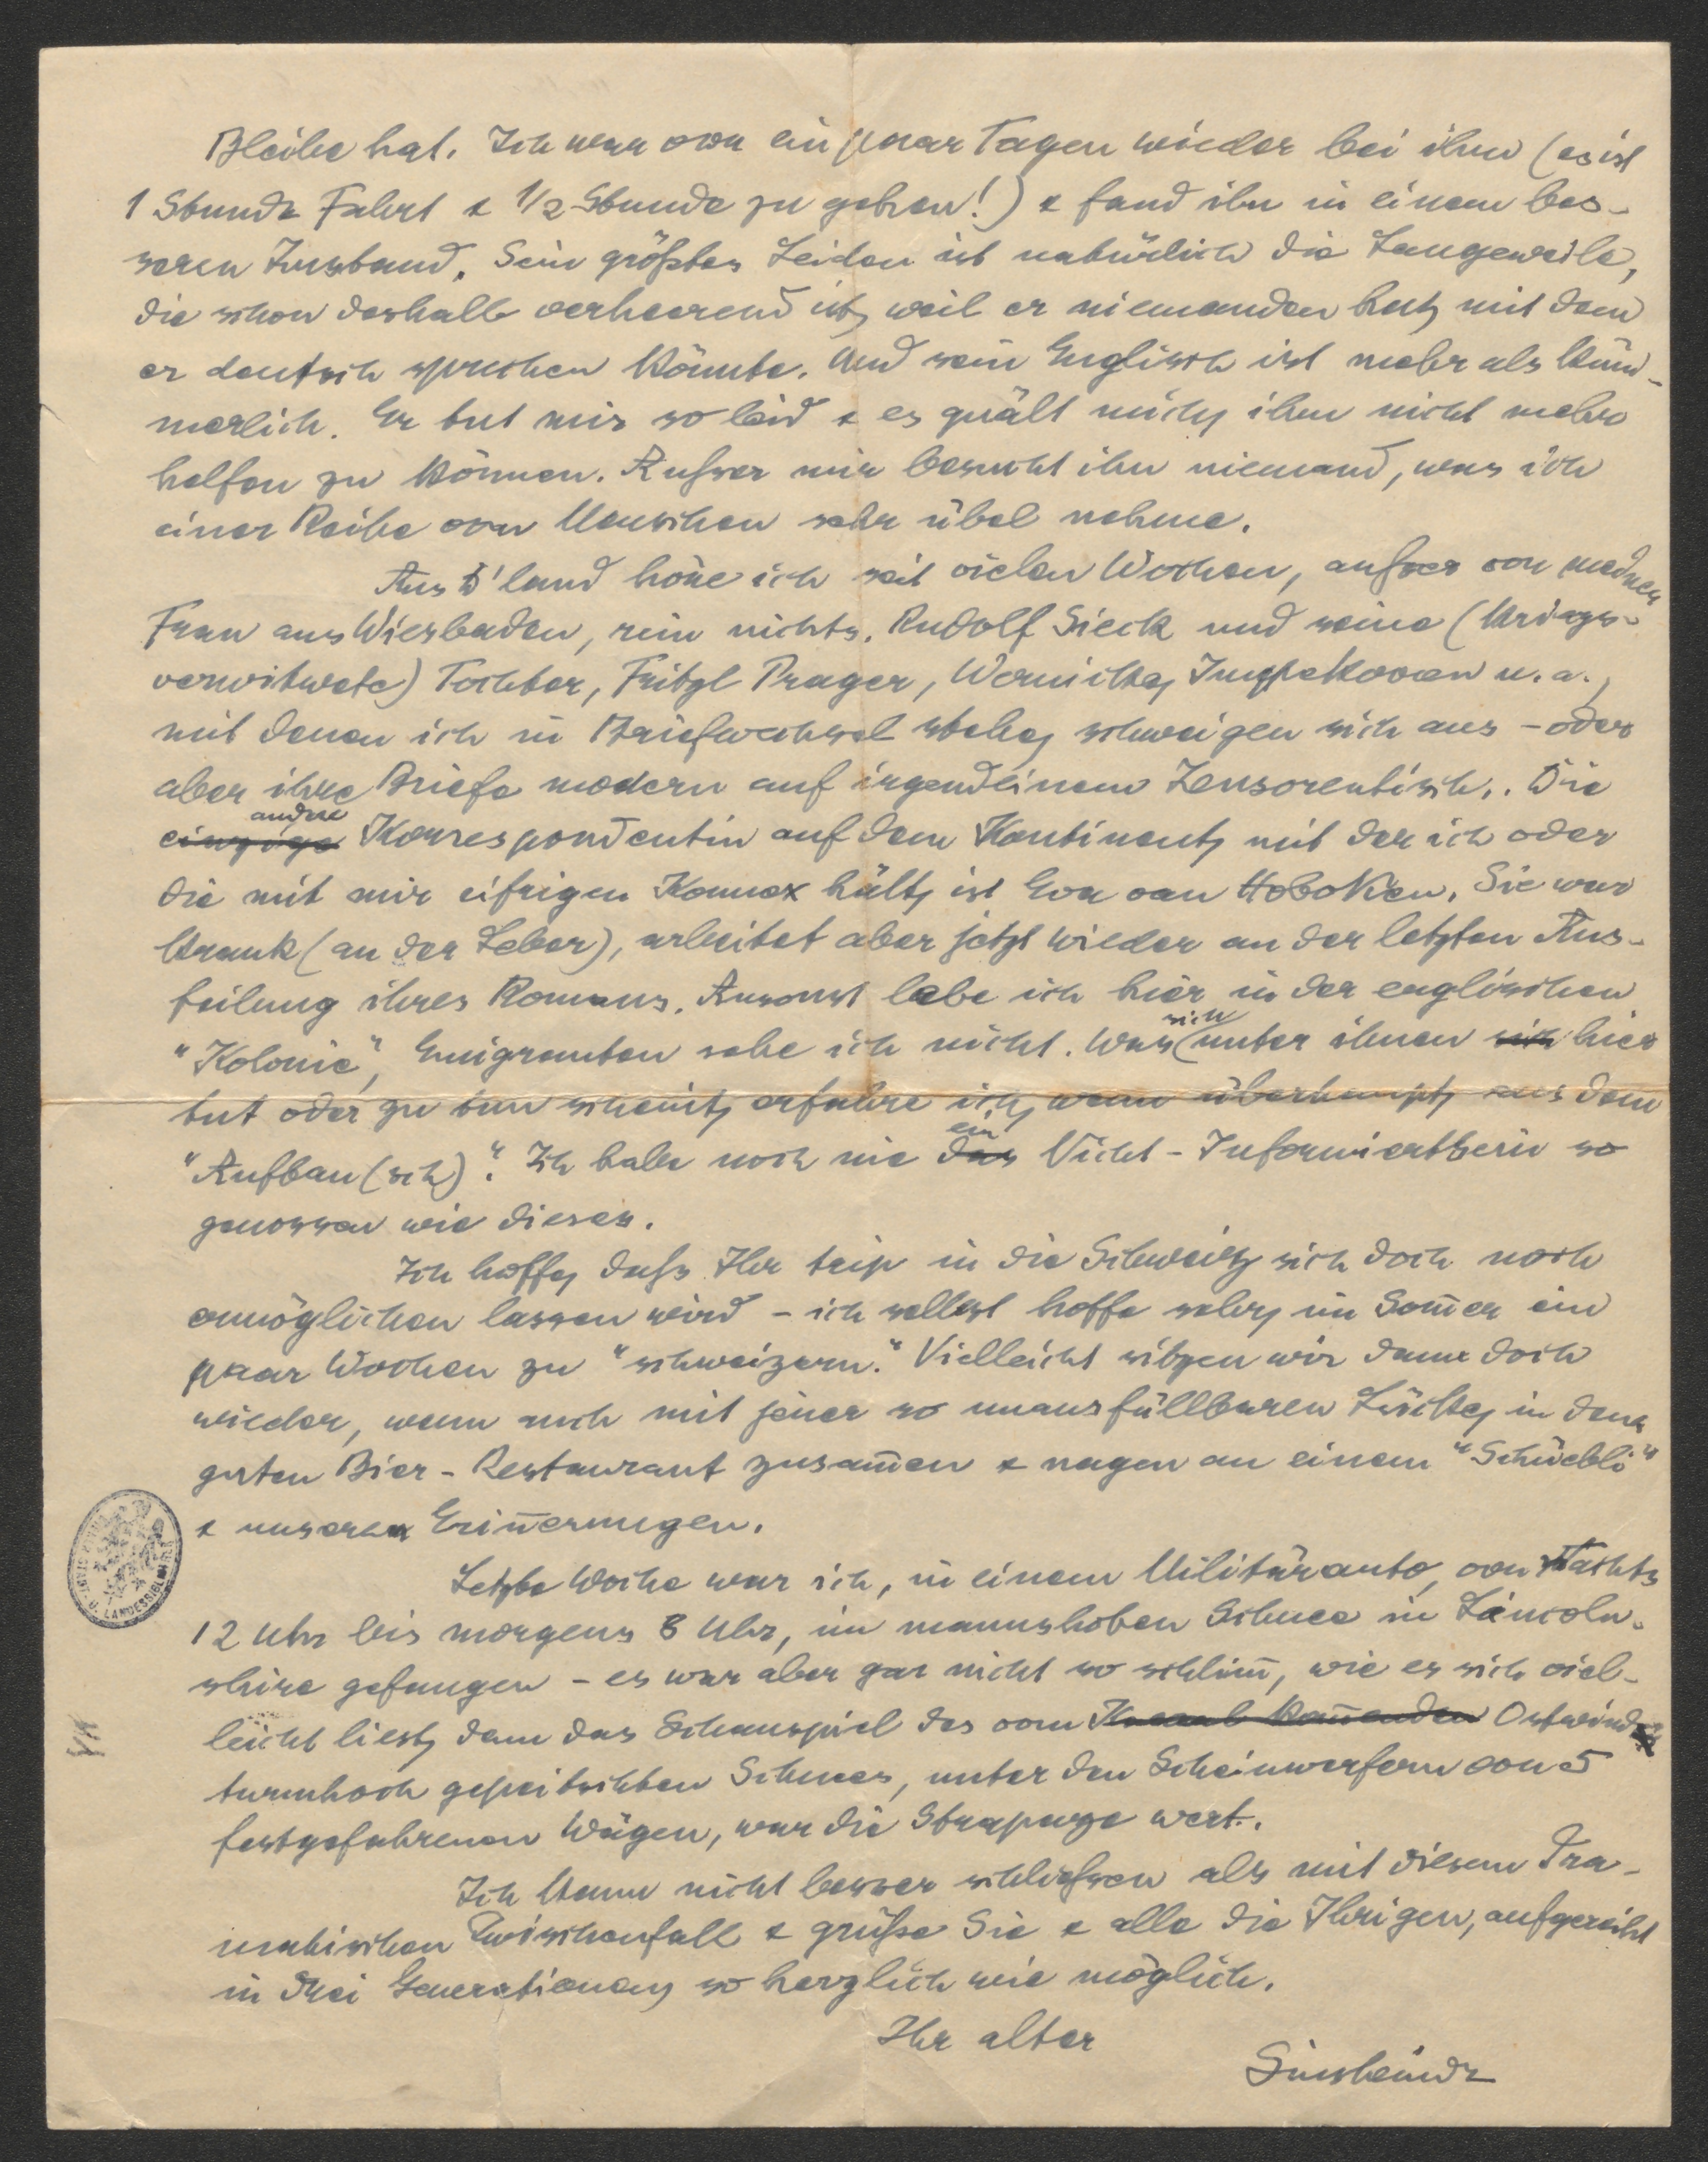 Bleibe hat. Ich war vor ein paar Tagen wieder bei ihm (es ist
1 Stunde Fahrt & 1/2 Stunde zu gehen!) & fand ihn in einem bes-
seren Zustand. Sein größtes Leiden ist natürlich die Langeweile,
die schon deshalb verheerend ist, weil er niemanden hat, mit dem
er deutsch sprechen könnte. Und sein Englisch ist mehr als küm-
merlich. Er tut mir so leid & es quält mich, ihm nicht mehr
helfen zu können. Aufser mir besucht ihn niemand, was ich
einer Reihe von Menschen sehr übel nehme.
Aus D'land höre ich seit vielen Wochen, aufser von meiner
Frau aus Wiesbaden, rein nichts. Rudolf Sieck und seine (kriegs-
verwitwete) Tochter, Fritzl Prager, Wernicke, Impekoven u. a.,
mit denen ich in Briefwechsel stehe, schweigen sich aus - oder
aber ihre Briefe modern auf irgendeinem Zensorentisch.. Die
andre
einzige Korrespondentin auf dem Kontinent, mit der ich oder
die mit mir eifrigen Konnex hält, ist Eva van Hoboken. Sie war
krank (an der Leber), arbeitet aber jetzt wieder an der letzten Aus-
feilung ihres Romans. Ansonst lebe ich hier in der englischen
"Kolonie", Emigranten sehe ich nicht. Was sich unter ihnen sich hier
tut oder zu tun scheint, erfahre ich, wenn überhaupt, aus dem
"Aufbau (sch)". Ich habe noch nie das ein Nicht-Informiertsein so
genossen wie dieses.
Ich hoffe, dafs Ihr trip in die Schweitz sich doch noch
ermöglichen lassen wird - ich selbst hoffe sehr, im Som̅er ein
paar Wochen zu "schweizern." Vielleicht sitzen wir dann doch
wieder, wenn auch mit jener so unausfüllbaren Lücke, in dem
guten Bier-Restaurant zusam̅en & nagen an einem "Schüebli"
& unseren Erin̅erungen.
Letzte Woche war ich, in einem Militärauto, von Nachts
12 Uhr bis morgens 8 Uhr, im mannshohen Schnee in Lincoln-
shire gefangen - es war aber gar nicht so schlim̅, wie es sich viel-
leicht liest, denn das Schauspiel des vom kom̅enden Ostwind
turmhoch gepeitschten Schnees, unter den Scheinwerfern von 5
festgefahrenen Wägen, war die Strapaze wert.
Ich kann nicht besser schliefsen als mit diesem Dra-
matischen Zwischenfall & grüße Sie & alle die Ihrigen, aufgereiht
in drei Generationen, so herzlich wie möglich.
Ihr alter
Sinsheimer
U. LANDESBIBLIOTHEK